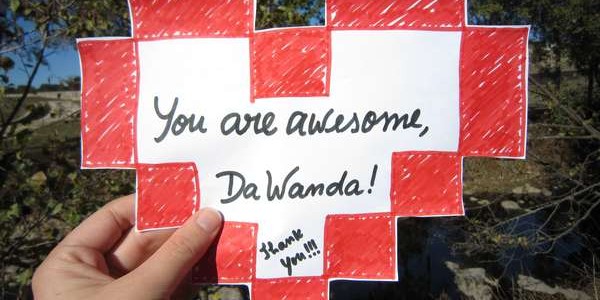 You are awesome,
DaWanda!
Thank
you!!!